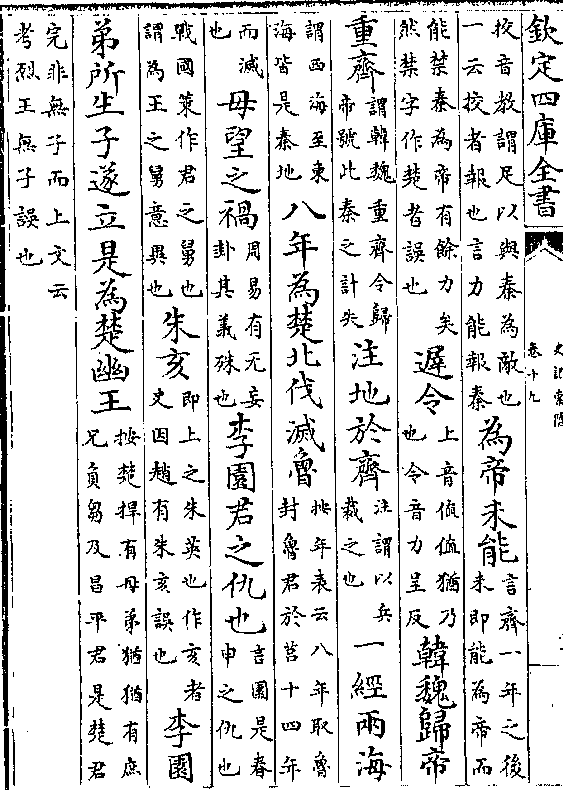 欽定四庫全書
史記索隱
卷十九
挍音教謂足以與秦為敵也
一云挍者報也言力能報秦
為帝未能
言齊一年之後
未即能為帝而
能禁秦為帝有餘力矣
然禁字作楚者誤也
遲令
上音值值猶乃
也令音力呈反
韓魏歸帝
重齊
謂韓魏重齊令歸
帝號此秦之計失
注地於齊
注謂以兵
裁之也
一經兩海
謂西海至東
海皆是秦地
八年為楚北伐滅魯
按年表云八年取魯
封魯君於莒十四年
而滅
也
毋望之禍
周易有无妄
卦其義殊也
李園君之仇也
言園是春
申之仇也
戰國策作君之舅也
謂為王之舅意異也
朱亥
即上之朱英也作亥者
史因趙有朱亥誤也
李園
弟所生子遂立是為楚幽王
按楚捍有母弟猶猶有庶
兄負芻及昌平君是楚君
完非無子而上文云
考烈王無子誤也